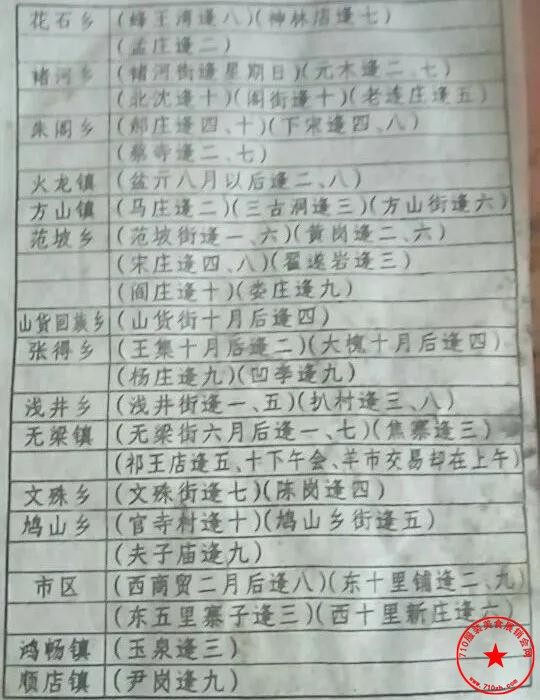 花石乡 (蜂王湾逢八)(神林店逢七)
(孟庄逢二)
褚河乡 (褚河街逢星期日)(元木逢二、七)
(北沈逢十)(阁街逢十)(老连庄逢五)
朱阁乡 (郝庄逢四、十)(下宋逢四、八)
(蔡寺逢二、七)
火龙镇 (盆亓八月以后逢二、八)
方山镇 (马庄逢二)(三古洞逢三)(方山街逢六)
范坡乡 (范坡街逢一、六)(黄岗逢二、六)
(宋庄逢四、八)(翟遂岩逢三)
(阎庄逢十)(娄庄逢九)
山货回族乡 (山货街十月后逢四)
张得乡 (王集十月后逢二)(大槐十月后逢四)
(杨庄逢九)(凹李逢九)
浅井乡 (浅井街逢一、五)(扒村逢三、八)
无梁镇 (无梁街六月后逢一、七)(焦寨逢三)
(祁王店逢五、十下午会、羊市交易却在上午)
文殊乡 (文殊街逢七)(陈岗逢四)
鸠山乡 (官寺村逢十)(鸠山乡街逢五)
(夫子庙逢九)
市区 (西商贸二月后逢八)(东十里铺逢二、九)
(东五里寨子逢三)(西十里新庄逢六)
鸿畅镇 (玉泉逢三)
顺店镇 (尹岗逢九)
710服装美食展销会网
www.710zh.com